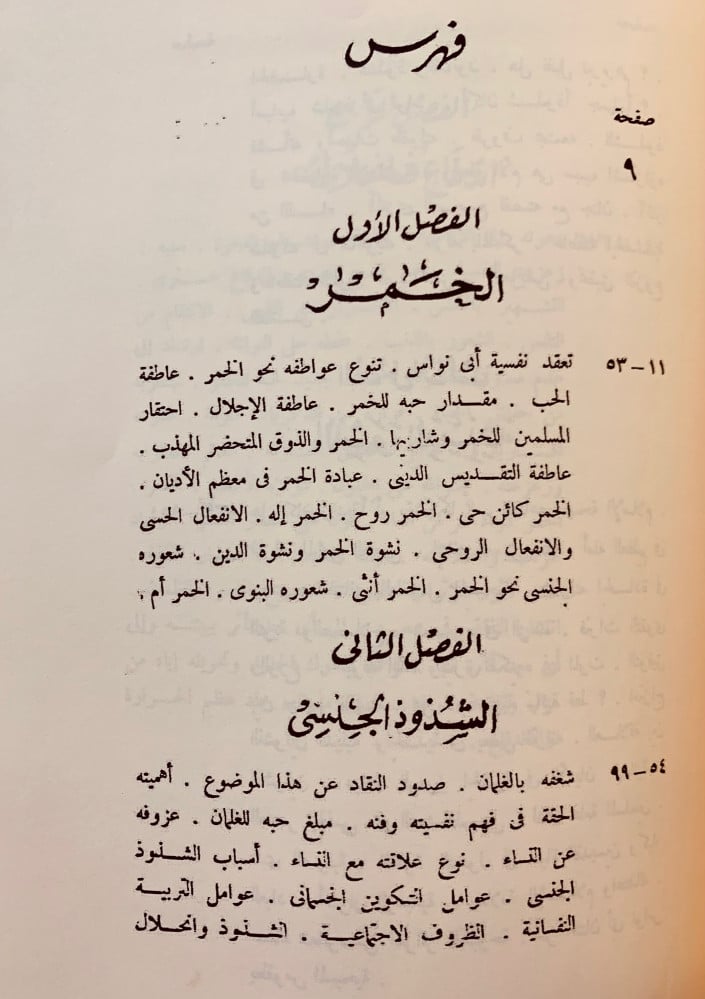 فهرس
صفحة
٩
الفصل الأول
الخمر
١١ – ٥٣
تعقد نفسية أبى نواس . تنوع عواطفه نحو الخمر . عاطفة
الحب . مقدار حبه للخمر . عاطفة الإجلال . احتقار
المسلمين للخمر وشاربيها . الخمر والذوق المتحضر المهذب .
عاطفة التقديس الدينى . عبادة الخمر فى معظم الأديان .
الخمر كائن حى . الخمر روح . الخمر إله . الانفعال الحسى
والانفعال الروحى . نشوة الخمر ونشوة الدين . شعوره
الجنسى نحو الخمر . الخمر أنثى . شعوره البنوى . الخمر أم .
الفصل الثانى
الشذوذ الجنسى
٥٤ – ٩٩
شغفه بالغلمان . صدود النقاد عن هذا الموضوع . أهميته
الحقة فى فهم نفسيته وفنه . مبلغ حبه للغلمان . عزوفه
عن النساء . نوع علاقته مع النساء . أسباب الشذوذ
الجنسى . عوامل التكوين الجسمانى . عوامل التربية
النفسانية . الظروف الاجتماعية . الشذوذ وانحلال